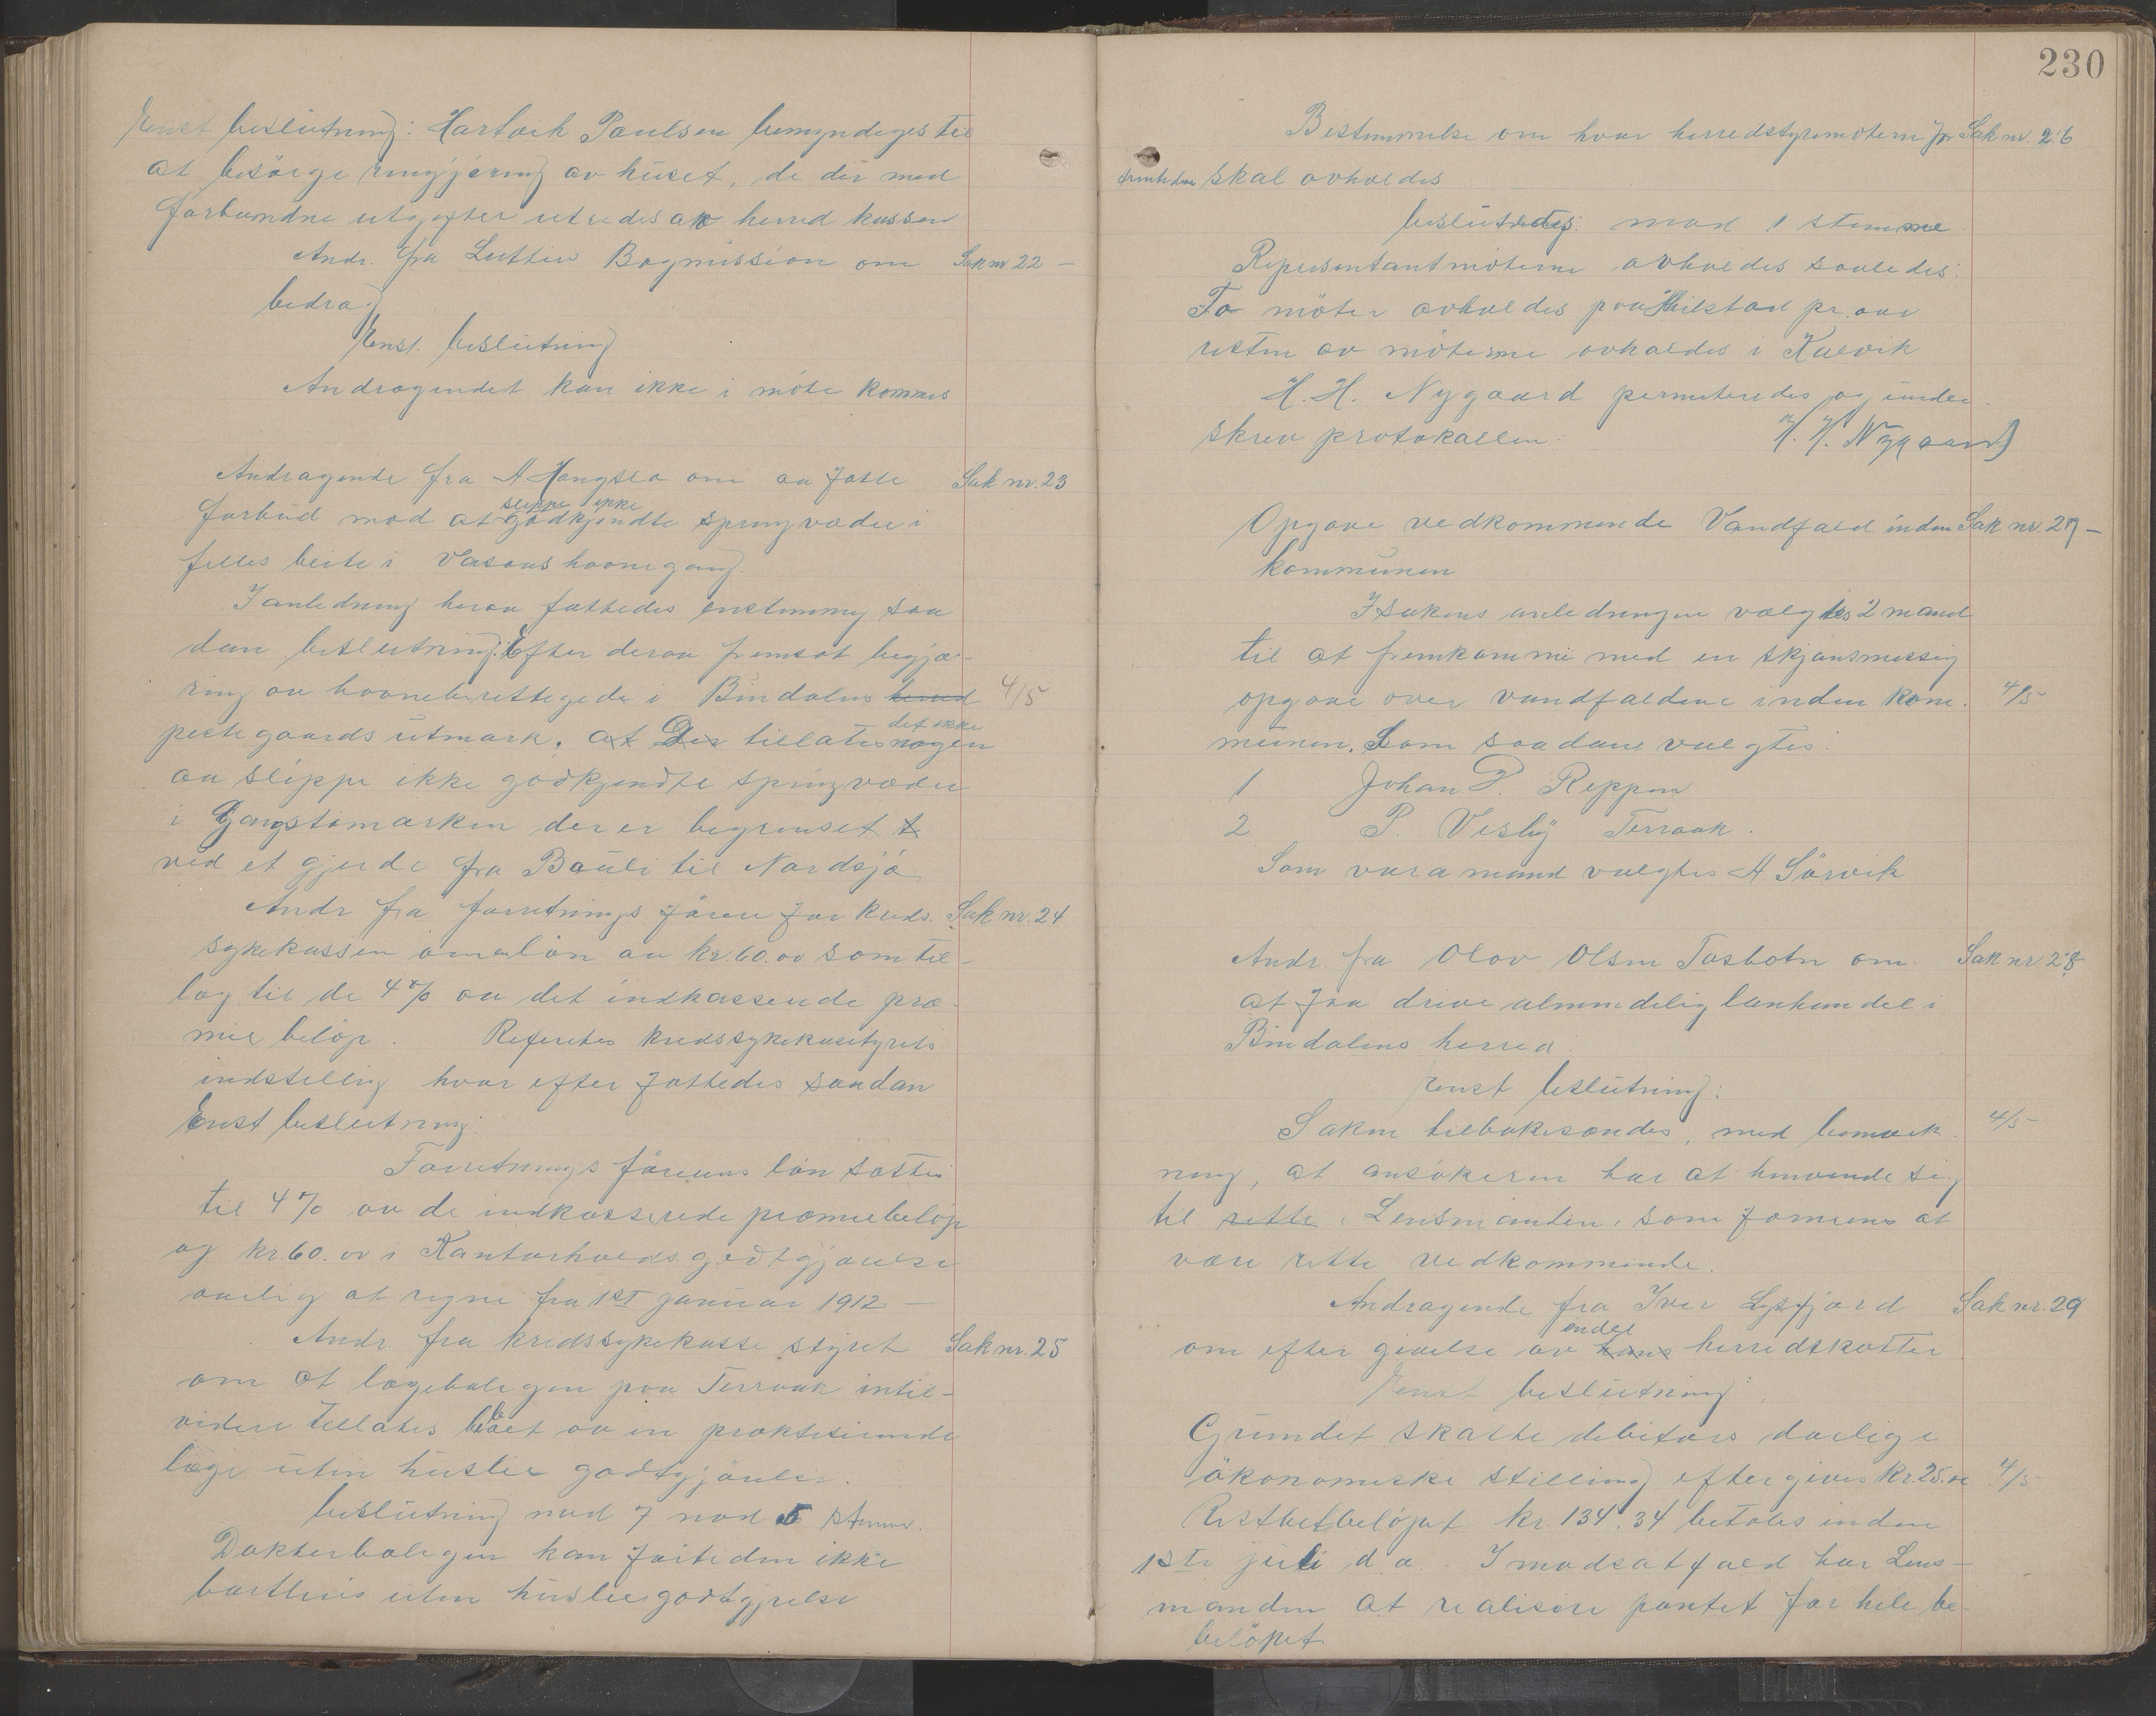 Enst beslutning: Hartvik Paulsen bemyndiges til
at besörge ringjöring av huset, de der med
forbundne utgifter utredes av herred kassen
Andr. fra Luthers Bogmission om Sak nr. 22 —
bedrag
Enst. beslutning
Andragendet kan ikke i möte kommes
Andragende fra A Hangslo om aa fatte Sak nr. 23
slippe ikke
forbud mod at godkjendte springvædre i
felles beite i Vasaas havnegang.
I anledning herav fattedes enstemmig saa
dan beslutning: Efter derom fremsat begjæ-
ring av havneberettigede i Bindalens herred 4/5
det ikke
prestegaards utmark. at Der tillates nogen
aa slippe ikke godkjendte springvædre
i Gangstomarken der er begrenset t
ved et gjerde fra Bauli til Nordsjö
Andr fra forretnings förer for kreds. Sak nr. 24
sykekassen om lön av kr. 60.00 som til-
læg til de 4% av det indkasserede præ-
mie belöp. Refertes kredssykekasestyrets
indstilling hvor efter fattedes saadan
Enst beslutning.
Forretnings förerens lön sættes
til 4% av de indkasserede præmiebelöp
og kr. 60.00 i Kontorholds godtgjörelse
aarlig at regne fra 1st januar 1912 —
Andr. fra kredssykekasse styret Sak nr. 25
om at lægeboligen paa Terraak intil-
videre tillates beboet av en praktiserende
læge uten huslie godtgjörelse.
beslutning med 7 mod 5 stemmer.
Doktorboligen kan for tiden ikke
bortleies uten huslie godtgjrelse
230
Bestemmelse om hvor herredstyremöterne for Sak nr. 26
fremtiden skal avholdes
beslutedes: mod 1 stemme
Representantmöterne avholdes saaledes:
To möter avholdes paa Hilstad pr. aar
resten av möterne avholdes i Kalvik
H. H. Nygaard permiteredes og under
skrev protokallen. H. H. Nygaard
Opgave vedkommende Vandfald inden Sak nr. 27 —
kommunen
I sakens anledningen valgtes 2 mand
til at fremkomme med en skjönsmessig
opgave over vandfaldene inden kom. 4/5
munen. Som saadane valgtes:
1 Johan P. Reppen
2 P. Vesby Terraak.
Som vara mand valgtes A. Sörvik
Andr. fra Olav Olsen Tosbotn om Sak nr 28
at faa drive almindelig lanhandel i
Bindalens herred.
Enst beslutning:
Saken tilbakesendes, med bemerk 4/5
ning, at ansökeren har at henvende sig
til rette Lensmanden, som formenes at
være rette vedkommende.
Andragende fra Iver Lysfjord Sak nr. 29
endel
om efter givelse av hans herredskatter
Enst beslutning:
Grundet skatte debitors darlige
ökonomiske stilling eftergives kr. 25.00 4/5
Restbetbelöpet kr. 134.34 betales inden
1ste juli d. a. I modsat fald har Lens-
manden at realisere pantet for hele be-
belöpet